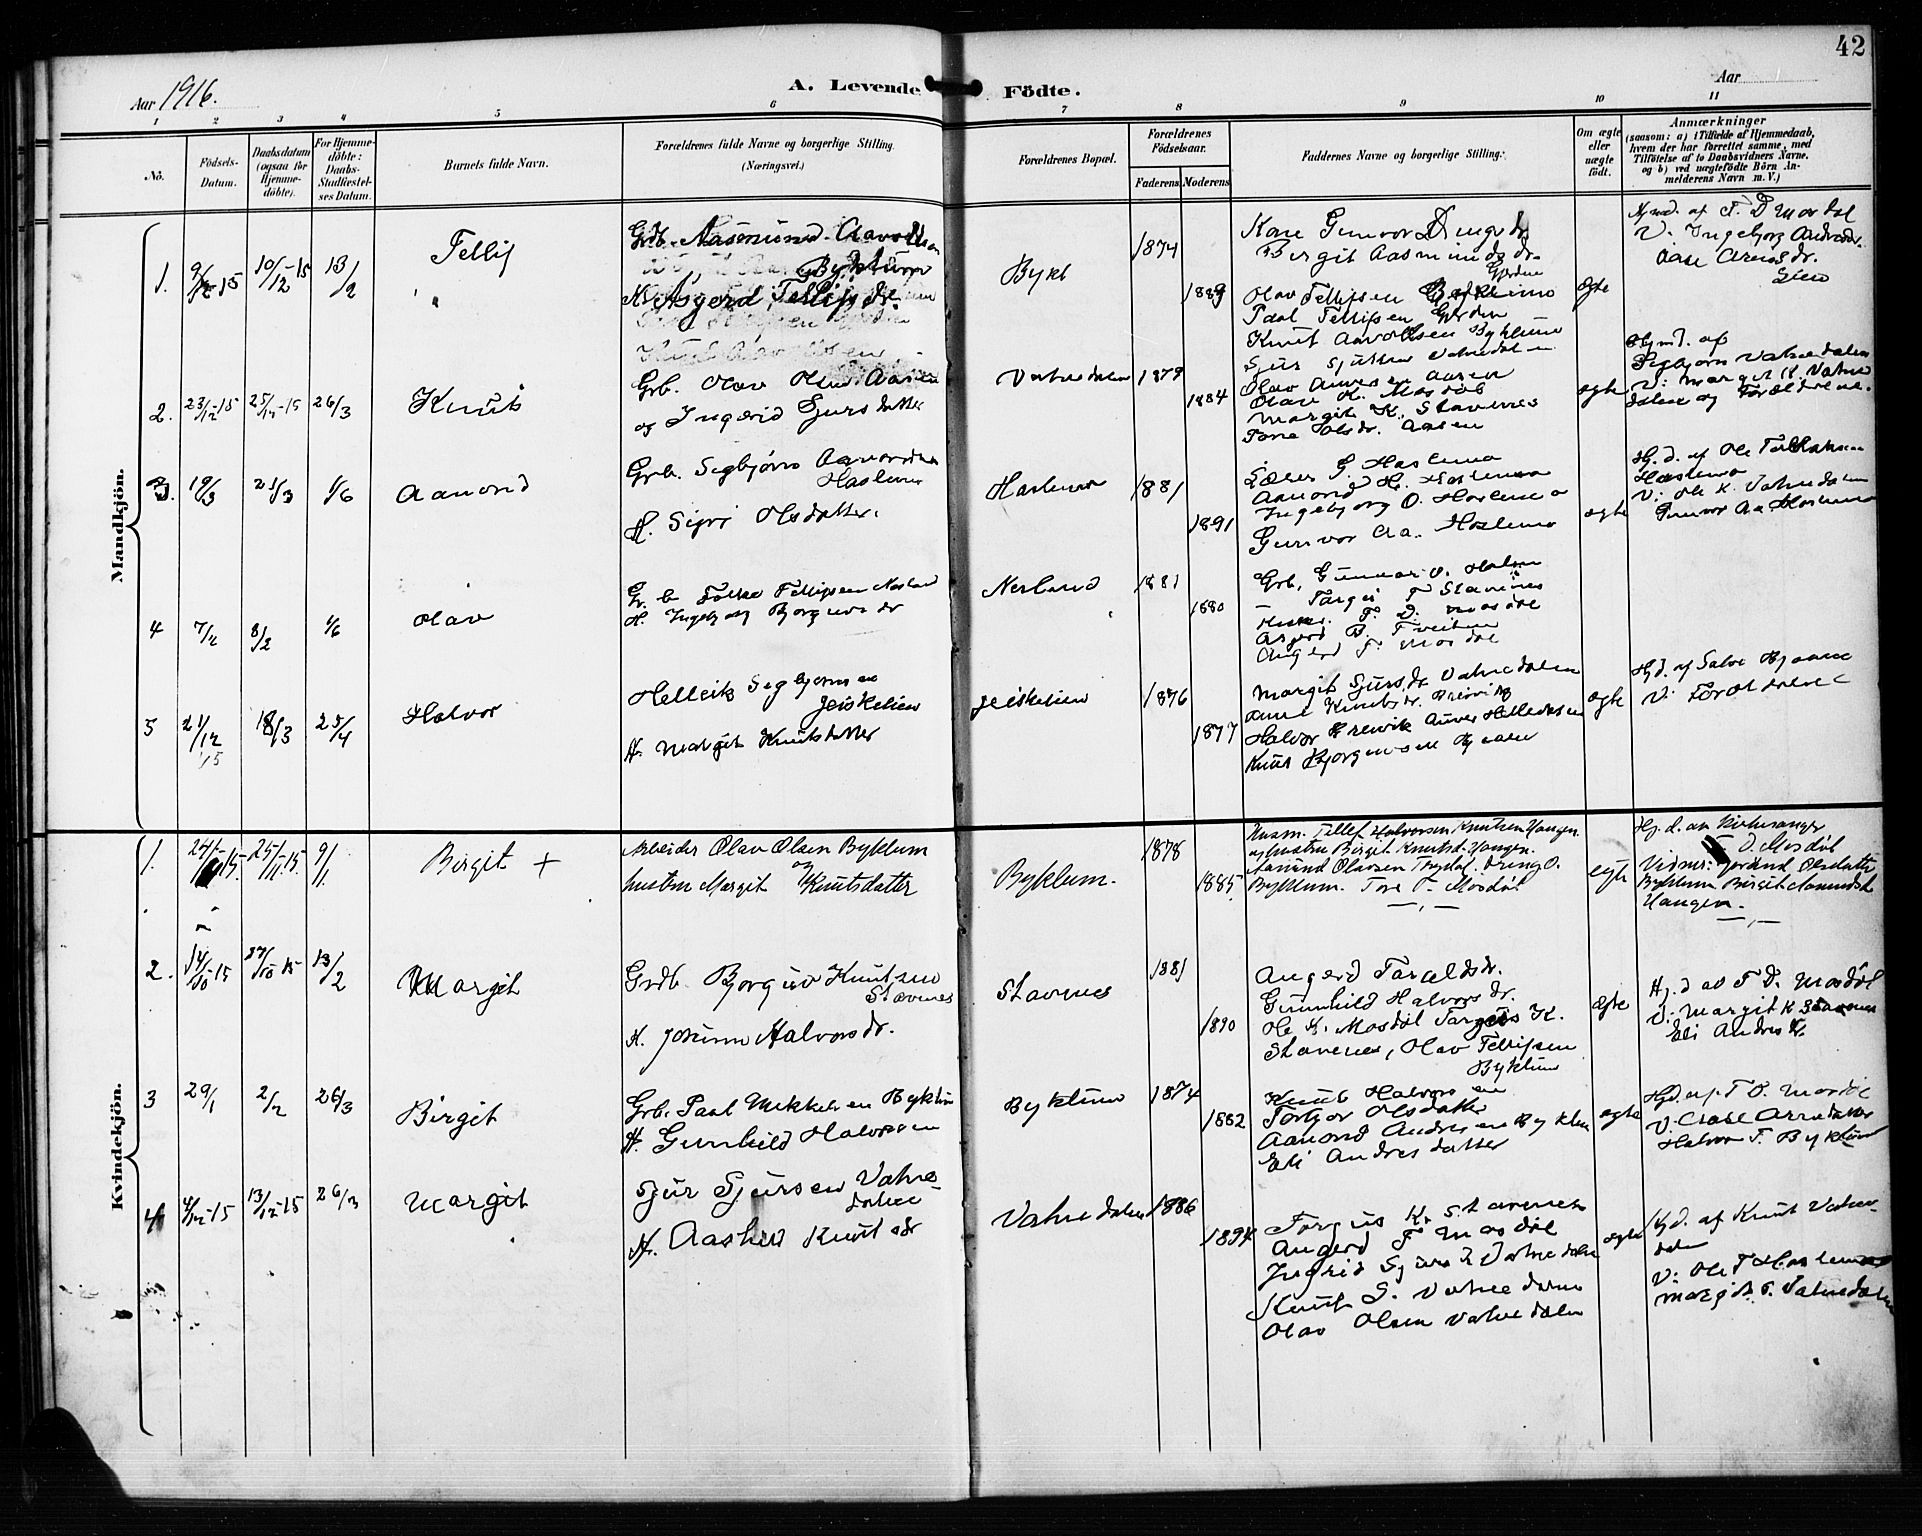 42
Aar 1916.
A. Levende Födte.
Aar
1 2 3 4 5 6 7 8 9 10 11
No.
Födsels-Datum.
Daabsdatum (ogsaa för Hjemme-döbte).
For Hjemme-döbte: Daabs-Stadfæstel-ses Datum.
Barnets fulde Navn.
Forældrenes fulde Navne og borgerlige Stilling. (Næringsvei.)
Forældrenes Bopæl.
Forældrenes Födselsaar.
Faderens Moderens
Faddernes Navne og borgerlige Stilling.
Om ægte eller uægte födt.
Anmærkninger
(saasom: a) i Tilfælde af Hjemmedaab, hvem der har forrettet samme, med Tilföielse af to Daabsvidners Navne, og b) ved uægtefödte Börn An-melderens Navn m. V.)
Mandkjön.
1. 10/12-15 13/2 Tellif
Grb. Aasmund
Byklum
Asgerd Tellifsdr.
Bykl
1874
1889
Kone Gunvor Drengsdr.
Birgit Aasmundsdr.
Gjerden
Olav Tellifsen Byklum
Paal Tellifsen Gjerden
Knut Aavoldsen Byklum
ægte
Hjmd. af T. D Mosdøl
V. Ingebjorg Andresdr.
Aase Arnesdr.
2. 23/12-15 25/12-15 26/3 Knut
Grb. Olav Olsen Aasen
og Ingerid Sjursdatter
Vatnedalen 1879
1884
Sjur Sjursen Vatnedalen
Olav Anversen Aasen
Olav K. Mosdøl
Margit K. Stavenes
Tone Olsdr. Aasen
ægte
Hjmd. af
Segbjørn Vatnedalen
V: Margit K. Vatne
dalen og Forældrene.
3. 19/3 21/3 1/6 Aamond
Grb. Segbjørn Aamondsen
Hoslemo
H. Sigri Olsdatter.
Hoslemo 1881
1891
G. Hoslemo
Aamond H. Hoslemo
Ingebjorg O. Hoslemo
Gunvor Aa. Hoslemo
ægte
Hj. d. af Ole Hoslemo
V: Ole K. Vatnedalen
Gunvor Aa Hoslemo
4 7/2 8/2 1/6 Olav
Gr. b Tellifsen Nesland
H. Ingebjorg Bjorgunsdr
Nesland 1881
1880
Grb. Gunnar O. Holen
Targei F Stavenes
T. D. Mosdøl
Asgerd B. Tveiten
Angerd T. Mosdøl
5 21/12 15 18/3 25/4 Halvor
Helleik Segbjornsen
Jeiskelien
H. Margit Knutsdatter
Jeiskelien 1876
1877
Margit Sjursdr Vatnedalen
Anne Knutsdr. Breivik
Halvor Breivik Anver Helleiksen
Knut Bjorgunsen Bjaaen
ægte
Hjd. af Salve Bjaaen
V: Forældrene
Kvindekjön.
1. 24/1-15. 25/11-15. 9/1. Birgit +
Arbeider Olav Olsen Byklum
og
hustru Margit Knutsdatter
Byklum.
1878
1885.
Husm. Tellef Halvorsen Knutsen Haugen
og hustru Birgit Knutsd. Haugen.
Aamund Olavsen Trydal. Dreng O.
Byklum. Tore T. Mosdøl
— „ —
egte
Hj.d. av Kirkesanger
T. D. Mosdøl
Vidner: Jorand Olsdatter
Byklum Birgit Aamundsd
Haugen.
— „ —
2. 14/10-15 17/10 15 13/2 Margit
Grdb. Bjorguv Knutsen
Stavnes
H. Jorunn Halvorsdr.
Stavnes
1881
1890
Angerd Taraldsdr.
Gunnhild Halvorsdr.
Ole K. Mosdøl Targeis K.
Stavenes, Olav Tellifsen
Byklum
ægte
Hj. d av T D. Mosdøl
V: Margit K Stavenes
Eli Andresdr.
3 29/1 2/2 26/3 Birgit
Grb. Paal Mikkelsen Byklum
H. Gunhild Halvorsen
Byklum 1874
1882
Knut Halvorsen
Torbjor Olsdatter
Aamond Andresen Byklum
Eli Andresdatter
ægte
Hjd. af T D. Mosdøl
V: Aase Arnedatter
Halvor T. Byklum
4 4/12-15 13/12-15 26/3 Margit
Sjur Sjursen Vatne
dalen
H. Aashild Knutsdr
Vatnedalen 1886
1894
Torgus K. Stavenes
Angerd T Mosdøl
Ingrid Sjursd Vatnedalen
Knut S. Vatnedalen
Olav Olsen Vatnedalen
ægte
Hjd. af Knut Vatne-
dalen
V: Ole T Hoslemo
Margit T. Vatnedalen